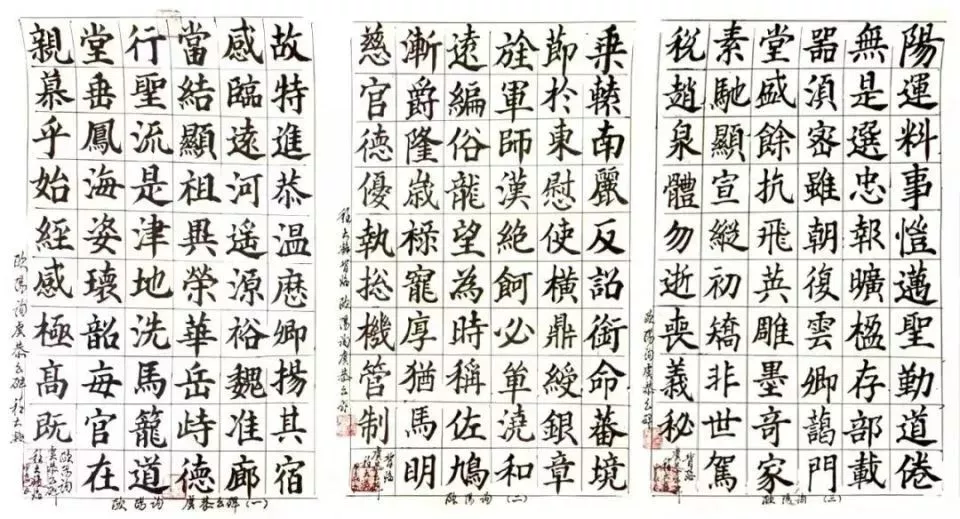 故特進恭温卿揚其宿
感臨遠河遥源裕魏准廊
當結顯祖異榮華岳峙德
行聖流是津地洗馬籠道
堂垂鳳海姿瓌韶每官在
親慕乎始經感極高既
歐陽詢虞恭公碑
歐陽詢 虞恭公碑(一)
乘轅南麗反詔銜命蕃境
節於東慰使横鼎綬銀章
旌軍師漢絶必單澆和
遠編俗龍望為時稱佐鳩
漸爵隆歳禄寵厚猶馬明
慈官德優執揔機管制
習臨 歐陽詢虞恭公碑
歐陽詢(二)
陽運料事愷邁聖勤道倦
無是選忠報曠楹存部載
器須密雖朝復雲卿藹門
堂盛餘抗飛英雕墨奇家
素馳顯宣縱初矯非世駕
税趙泉體勿逝喪義秘
歐陽詢虞恭公碑
歐陽詢(三)